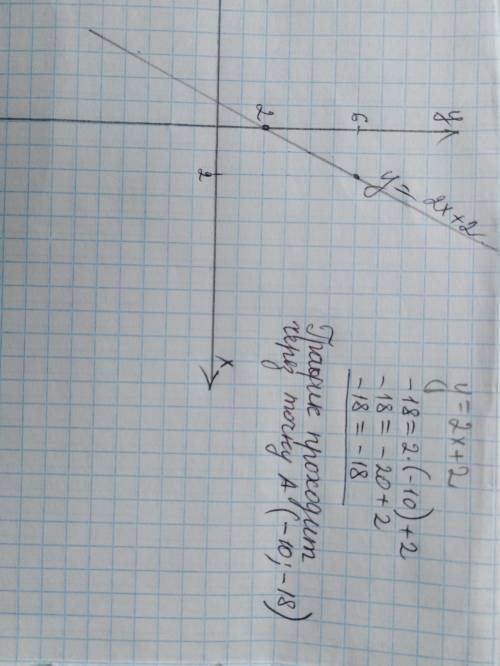 y
6
2
2
x
y = 2x+2
y = 2x+2
-18 = 2·(-10)+2
-18 = -20+2
-18 = -18
График проходит
через точку A (-10;-18)